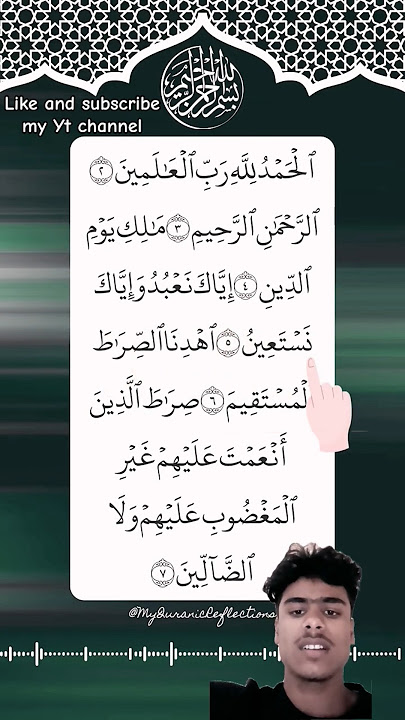 بسم الله الرحمن الرحيم
Like and subscribe
my Yt channel
ٱلْحَمْدُ لِلَّهِ رَبِّ ٱلْعَـٰلَمِينَ ٢
ٱلرَّحْمَـٰنِ ٱلرَّحِيمِ ٣ مَـٰلِكِ يَوْمِ
ٱلدِّينِ ٤ إِيَّاكَ نَعْبُدُ وَإِيَّاكَ
نَسْتَعِينُ ٥ ٱهْدِنَا ٱلصِّرَٰطَ
لْمُسْتَقِيمَ ٦ صِرَٰطَ ٱلَّذِينَ
أَنْعَمْتَ عَلَيْهِمْ غَيْرِ
ٱلْمَغْضُوبِ عَلَيْهِمْ وَلَا
ٱلضَّآلِّينَ ٧
@MyQuranicReflections